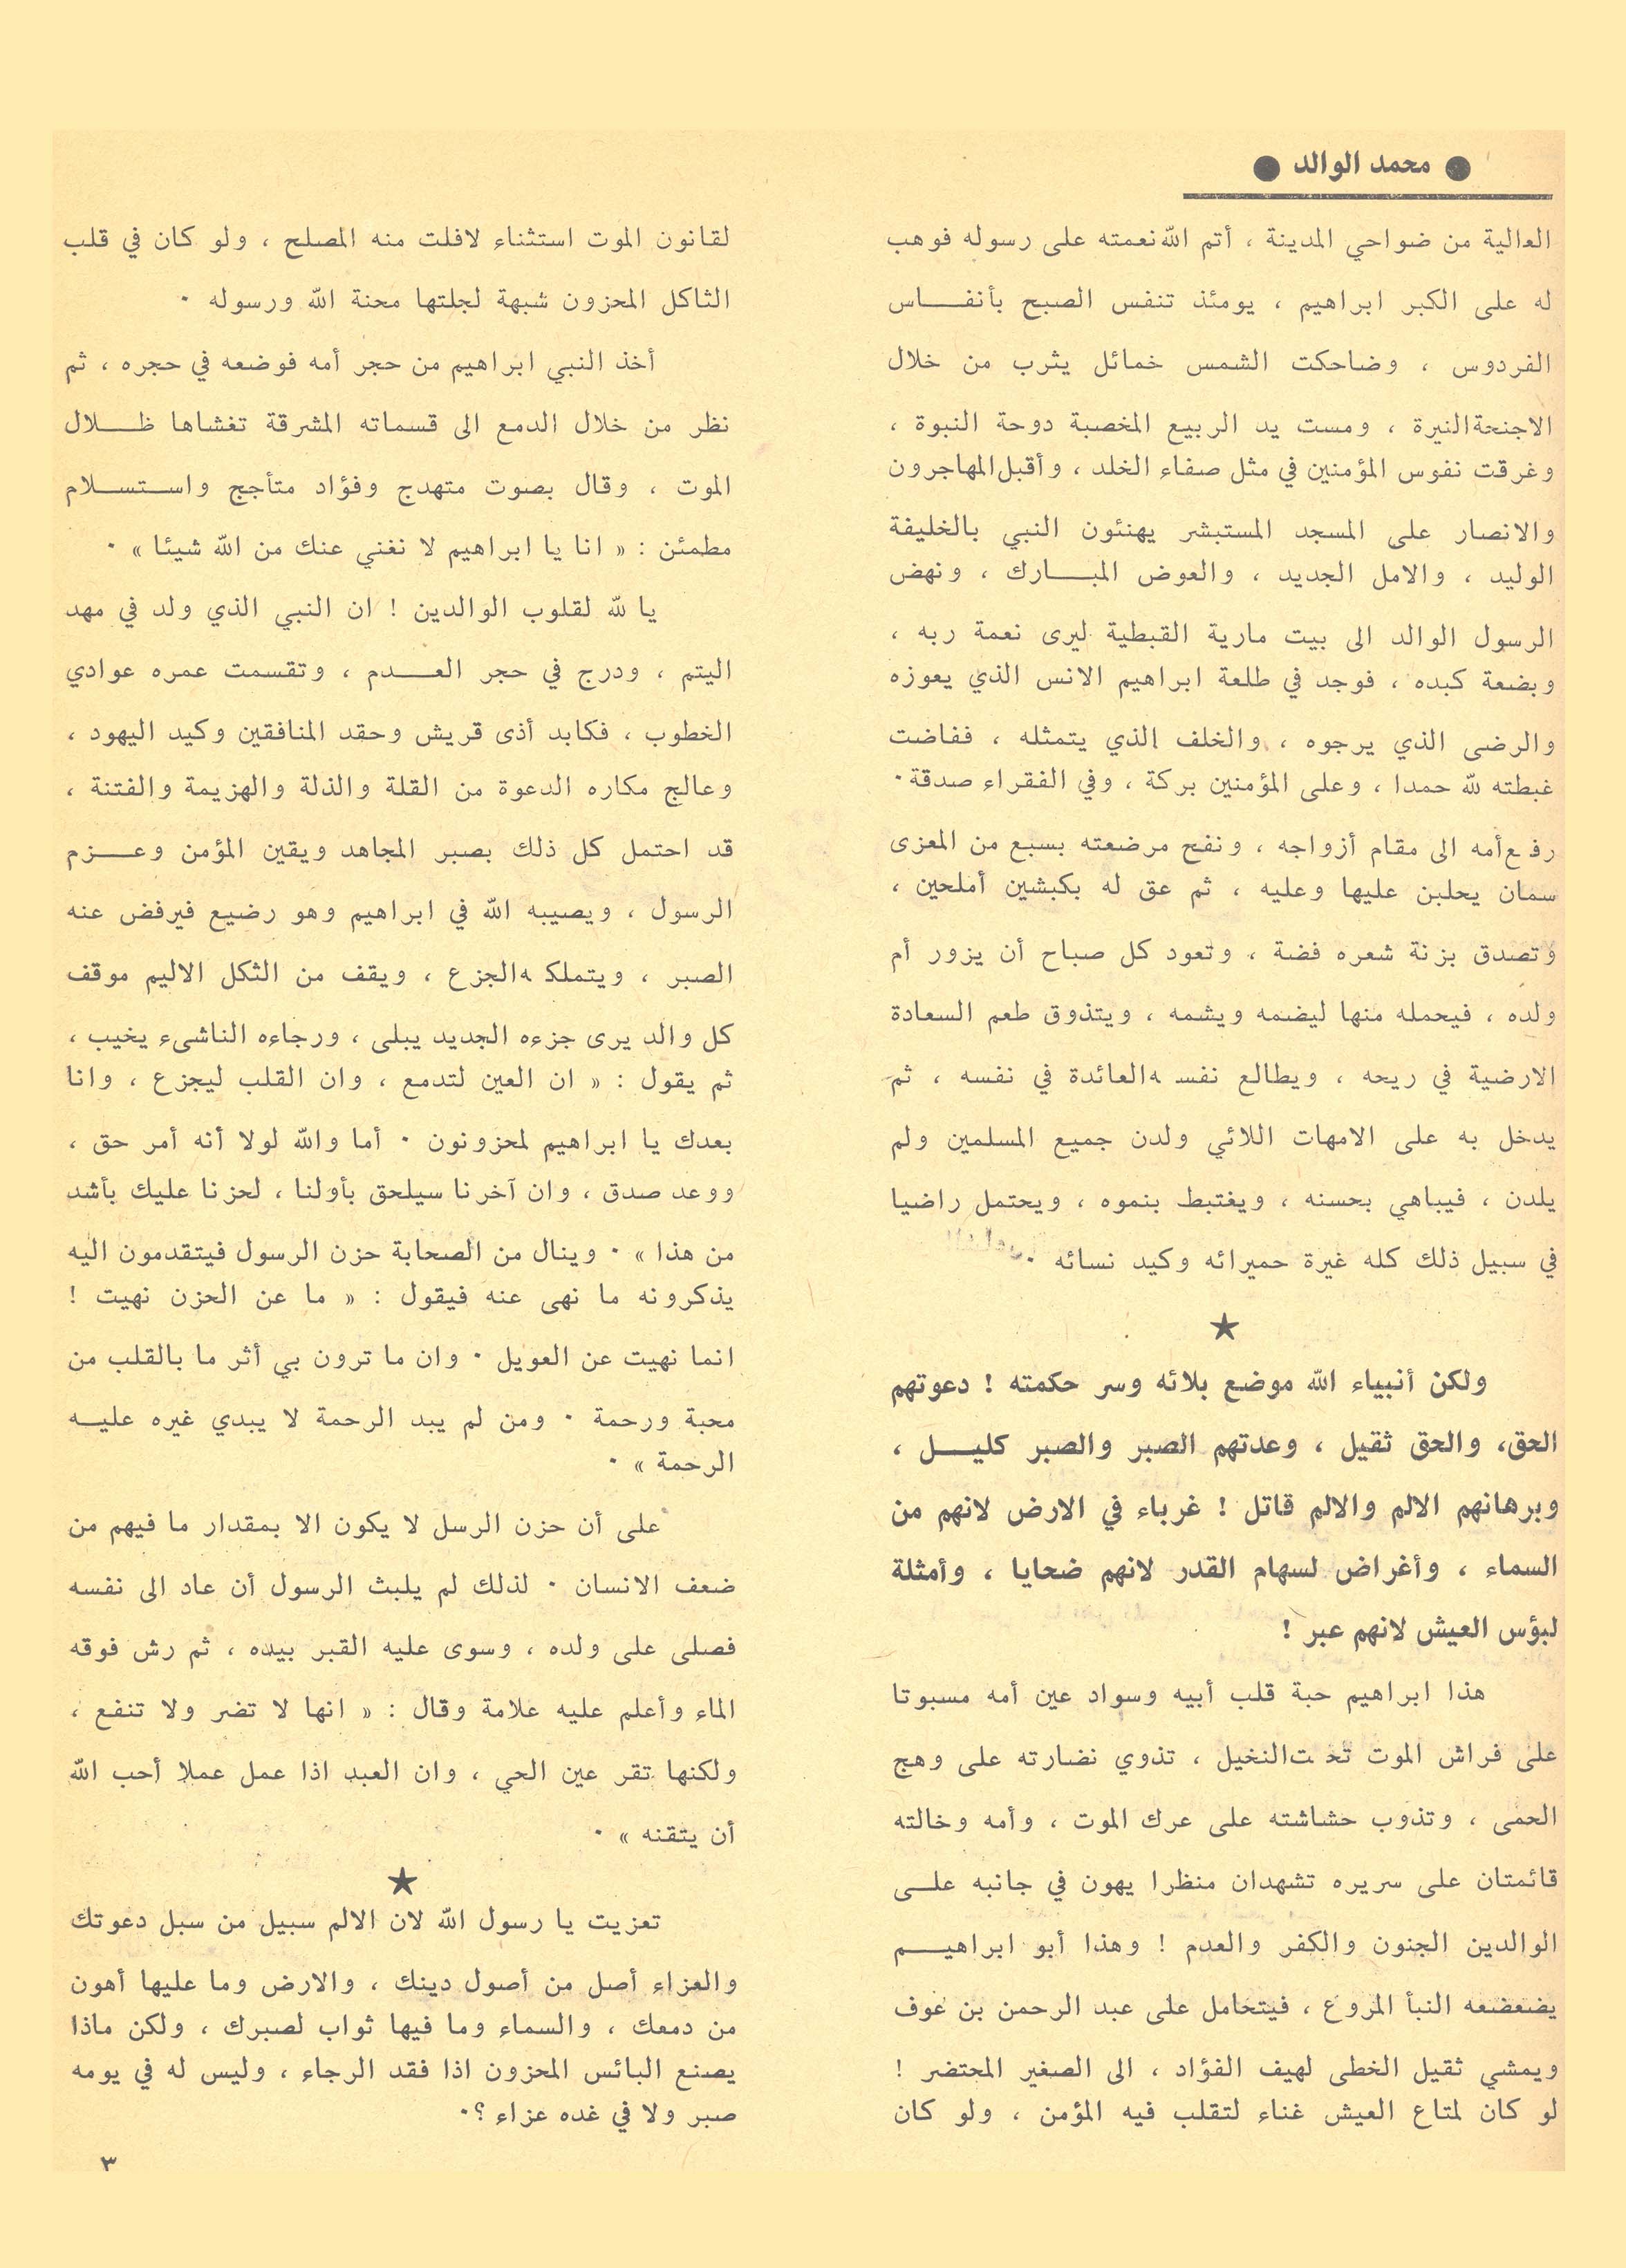 ● محمد الوالد ●
العالية من ضواحي المدينة ، أتم الله نعمته على رسوله فوهب
له على الكبر ابراهيم ، يومئذ تنفس الصبح بأنفـــاس
الفردوس ، وضاحكت الشمس خمائل يثرب من خلال
الاجنحة النيرة ، ومست يد الربيع المخصبة دوحة النبوة ،
وغرقت نفوس المؤمنين في مثل صفاء الخلد ، وأقبل المهاجرون
والانصار على المسجد المستبشر يهنئون النبي بالخليفة
الوليد ، والامل الجديد ، والعوض المبـــارك ، ونهض
الرسول الوالد الى بيت مارية القبطية ليرى نعمة ربه ،
وبضعة كبده ، فوجد في طلعة ابراهيم الانس الذي يعوزه
والرضى الذي يرجوه ، والخلف الذي يتمثله ، ففاضت
غبطته لله حمدا ، وعلى المؤمنين بركة ، وفي الفقراء صدقة ٠
رفع أمه الى مقام أزواجه ، ونفح مرضعته بسبع من المعزى
سمان يحلبن عليها وعليه ، ثم عق له بكبشين أملحين ،
وتصدق بزنة شعره فضة ، وتعود كل صباح أن يزور أم
ولده ، فيحمله منها ليضمه ويشمه ، ويتذوق طعم السعادة
الارضية في ريحه ، ويطالع نفسه العائدة في نفسه ، ثم
يدخل به على الامهات اللائي ولدن جميع المسلمين ولم
يلدن ، فيباهي بحسنه ، ويغتبط بنموه ، ويحتمل راضيا
في سبيل ذلك كله غيرة حميرائه وكيد نسائه ٠
★
ولكن أنبياء الله موضع بلائه وسر حكمته ! دعوتهم
الحق، والحق ثقيل ، وعدتهم الصبر والصبر كليـــل ،
وبرهانهم الالم والالم قاتل ! غرباء في الارض لانهم من
السماء ، وأغراض لسهام القدر لانهم ضحايا ، وأمثلة
لبؤس العيش لانهم عبر !
هذا ابراهيم حبة قلب أبيه وسواد عين أمه مسبوتا
على فراش الموت تحت النخيل ، تذوي نضارته على وهج
الحمى ، وتذوب حشاشته على عرك الموت ، وأمه وخالته
قائمتان على سريره تشهدان منظرا يهون في جانبه علــى
الوالدين الجنون والكفر والعدم ! وهذا أبو ابراهيـــم
يضعضعه النبأ المروع ، فيتحامل على عبد الرحمن بن عوف
ويمشي ثقيل الخطى لهيف الفؤاد ، الى الصغير المحتضر !
لو كان لمتاع العيش غناء لتقلب فيه المؤمن ، ولو كان
لقانون الموت استثناء لافلت منه المصلح ، ولو كان في قلب
الثاكل المحزون شبهة لجلتها محنة الله ورسوله ٠
أخذ النبي ابراهيم من حجر أمه فوضعه في حجره ، ثم
نظر من خلال الدمع الى قسماته المشرقة تغشاها ظـــلال
الموت ، وقال بصوت متهدج وفؤاد متأجج واستســلام
مطمئن : « انا يا ابراهيم لا نغني عنك من الله شيئا » ٠
يا لله لقلوب الوالدين ! ان النبي الذي ولد في مهد
اليتم ، ودرج في حجر العــدم ، وتقسمت عمره عوادي
الخطوب ، فكابد أذى قريش وحقد المنافقين وكيد اليهود ،
وعالج مكاره الدعوة من القلة والذلة والهزيمة والفتنة ،
قد احتمل كل ذلك بصبر المجاهد ويقين المؤمن وعـــزم
الرسول ، ويصيبه الله في ابراهيم وهو رضيع فيرفض عنه
الصبر ، ويتملكه الجزع ، ويقف من الثكل الاليم موقف
كل والد يرى جزءه الجديد يبلى ، ورجاءه الناشىء يخيب ،
ثم يقول : « ان العين لتدمع ، وان القلب ليجزع ، وانا
بعدك يا ابراهيم لمحزونون ٠ أما والله لولا أنه أمر حق ،
ووعد صدق ، وان آخرنا سيلحق بأولنا ، لحزنا عليك بأشد
من هذا » ٠ وينال من الصحابة حزن الرسول فيتقدمون اليه
يذكرونه ما نهى عنه فيقول : « ما عن الحزن نهيت !
انما نهيت عن العويل ٠ وان ما ترون بي أثر ما بالقلب من
محبة ورحمة ٠ ومن لم يبد الرحمة لا يبدي غيره عليــه
الرحمة » ٠
على أن حزن الرسل لا يكون الا بمقدار ما فيهم من
ضعف الانسان ٠ لذلك لم يلبث الرسول أن عاد الى نفسه
فصلى على ولده ، وسوى عليه القبر بيده ، ثم رش فوقه
الماء وأعلم عليه علامة وقال : « انها لا تضر ولا تنفع ،
ولكنها تقر عين الحي ، وان العبد اذا عمل عملا أحب الله
أن يتقنه » ٠
★
تعزيت يا رسول الله لان الالم سبيل من سبل دعوتك
والعزاء أصل من أصول دينك ، والارض وما عليها أهون
من دمعك ، والسماء وما فيها ثواب لصبرك ، ولكن ماذا
يصنع البائس المحزون اذا فقد الرجاء ، وليس له في يومه
صبر ولا في غده عزاء ؟٠
٣